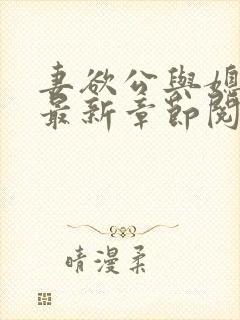 妻欲公與媳
最新章節閱
晴漫柔